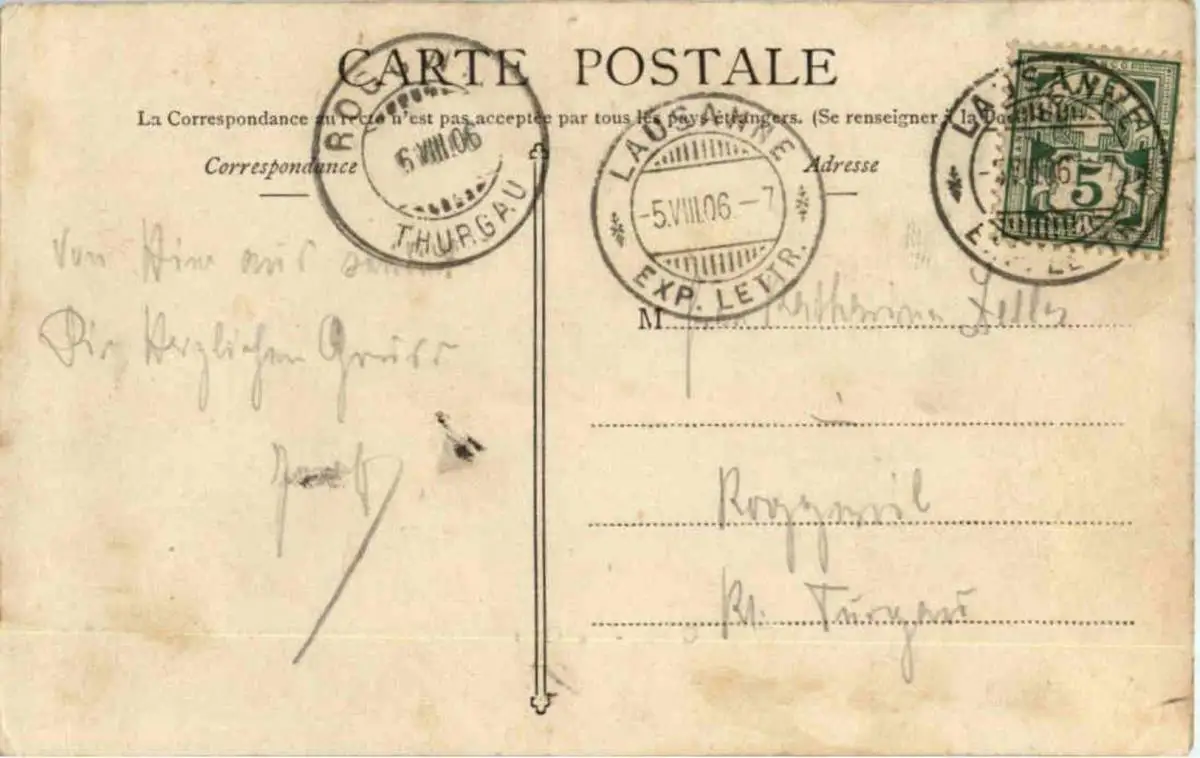 CARTE POSTALE
La Correspondance au recto n'est pas acceptée par tous les pays étrangers. (Se renseigner à la
Correspondance
Adresse
THURGAU
6.VIII.06
LAUSANNE
-5.VIII.06.-7
EXP. LETTR.
LAUSANNE
5
von Hier aus
Dir Herzlichen Gruss
M Katharina Zeller
Roggwil
Kt. Turgau